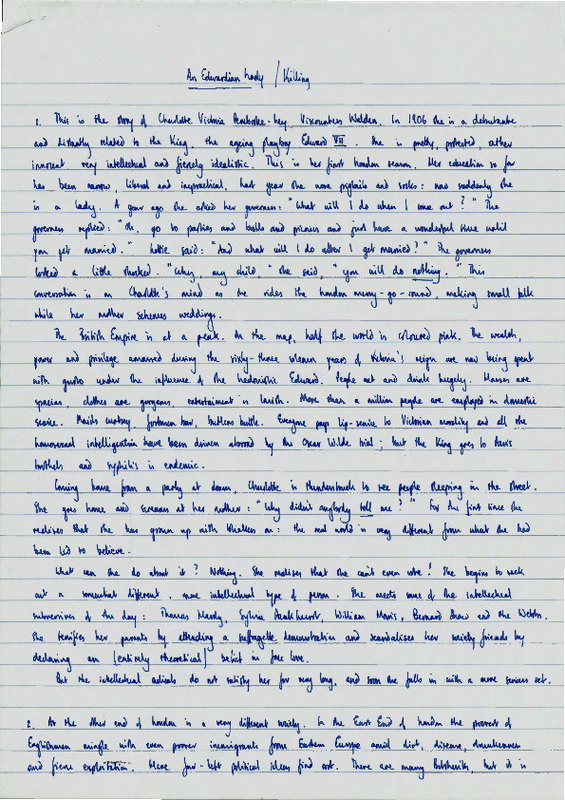 An Edwardian Lady / Killing
1. This is the story of Charlotte Victoria Pembroke-Ley, Viscountess Walden. In 1906 she is a debutante
and distantly related to the King, the ageing playboy Edward VII. She is pretty, protected, rather
innocent very intellectual and fiercely idealistic. This is her first London season. Her education so far
has been narrow, liberal and impractical. Last year she wore pigtails and socks: now suddenly she
is a lady. A year ago she asked her governess: "What will I do when I come out?" The
governess replied: "Oh, go to parties and balls and picnics and just have a wonderful time until
you get married." Lottie said: "And what will I do after I get married?" The governess
looked a little shocked. "Why, my child," she said, "you will do nothing." This
conversation is on Charlotte's mind as she rides the London merry-go-round, making small talk
while her mother schemes weddings.
The British Empire is at a peak. On the map, half the world is coloured pink. The wealth,
power and privilege amassed during the sixty-three solemn years of Victoria's reign are now being spent
with gusto under the influence of the hedonistic Edward. People eat and drink hugely. Houses are
spacious, clothes are gorgeous, entertainment is lavish. More than a million people are employed in domestic
service. Maids curtsey, footmen bow, butlers buttle. Everyone pays lip-service to Victorian morality and all the
homosexual intelligentsia have been driven abroad by the Oscar Wilde trial; but the King goes to Paris
brothels and syphilis is endemic.
Coming home from a party at dawn, Charlotte is thunderstruck to see people sleeping in the street.
She goes home and screams at her mother: "Why didn't anybody tell me?" For the first time she
realises that she has grown up with blinkers on: the real world is very different from what she had
been led to believe.
What can she do about it? Nothing. She realises that she can't even vote! She begins to seek
out a somewhat different, more intellectual type of person. She meets some of the intellectual
subversives of the day: Thomas Hardy, Sylvia Pankhurst, William Morris, Bernard Shaw and the Webbs.
She terrifies her parents by attending a suffragette demonstration and scandalises her society friends by
declaring an (entirely theoretical) belief in free love.
But the intellectual radicals do not satisfy her for very long, and soon she falls in with a more serious set.
2. At the other end of London is a very different society. In the East End of London the poorest of
Englishmen mingle with even poorer immigrants from Eastern Europe amid dirt, disease, drunkenness
and fierce exploitation. Here far-left political ideas find root. There are many Bolsheviks, but it is